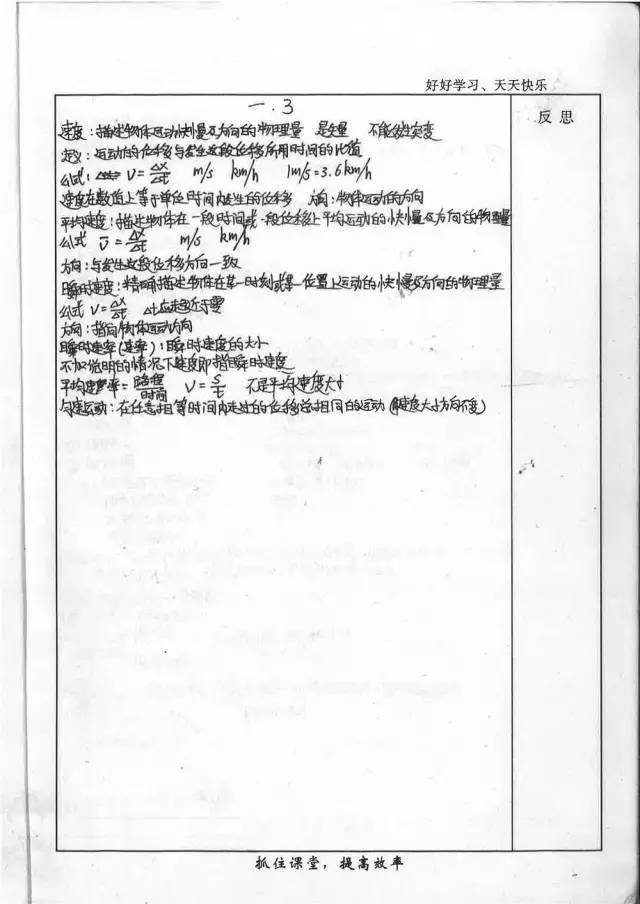 好好学习、天天快乐
反思
一.3
速度:描述物体运动快慢及方向的物理量 是矢量 不能发生突变
定义:运动的位移与发生这段位移所用时间的比值
公式: V=Δx/Δt m/s km/h 1m/s=3.6km/h
速度在数值上等于单位时间内发生的位移 方向:物体运动的方向
平均速度:描述物体在一段时间或一段位移上平均运动的快慢及方向的物理量
公式 V̄=Δx/Δt m/s km/h
方向:与发生这段位移方向一致
瞬时速度:精确描述物体在某一时刻或某一位置上运动的快慢及方向的物理量
公式 V=Δx/Δt Δt应趋近于零
方向:指向物体运动方向
瞬时速率(速率):瞬时速度的大小
不加说明的情况下速度即指瞬时速度
平均速率=路程/时间 V=s/t 不是平均速度大小
匀速运动:在任意相等时间内走过的位移总相同的运动(即速度大小方向不变)
抓住课堂,提高效率